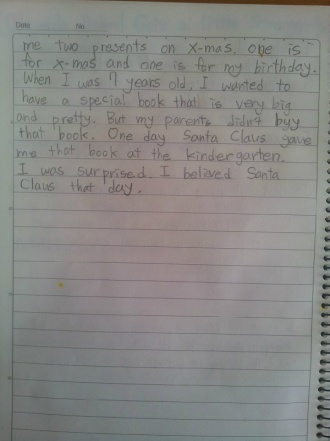 Date No.
me two presents on X-mas. one is
for x-mas and one is for my birthday.
When I was 7 years old, I wanted to
have a special book that is very big
and pretty. But my parents didn't buy
that book. One day Santa Claus gave
me that book at the kindergarten.
I was surprised. I belived Santa
Claus that day.